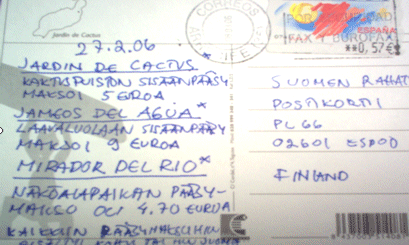 Jardin de Cactus
27.2.06
JARDIN DE CACTUS *
KAKTUSPUISTON SISÄÄNPÄÄSY
MAKSOI 5 EUROA
JAMEOS DEL AGUA *
LAAVALUOLAAN SISÄÄNPÄÄSY
MAKSOI 9 EUROA
MIRADOR DEL RIO *
NÄKÖALAPAIKAN PÄÄSY-
MAKSO OLI 4.70 EUROA
KAIKKIIN PÄÄSYMAKSUIHIN
CORREOS
ESPAÑA
FAX EUROFAX
**0,57€
SUOMEN RAHAT
POSTIKORTTI
PL 66
02601 ESPOO
FINLAND